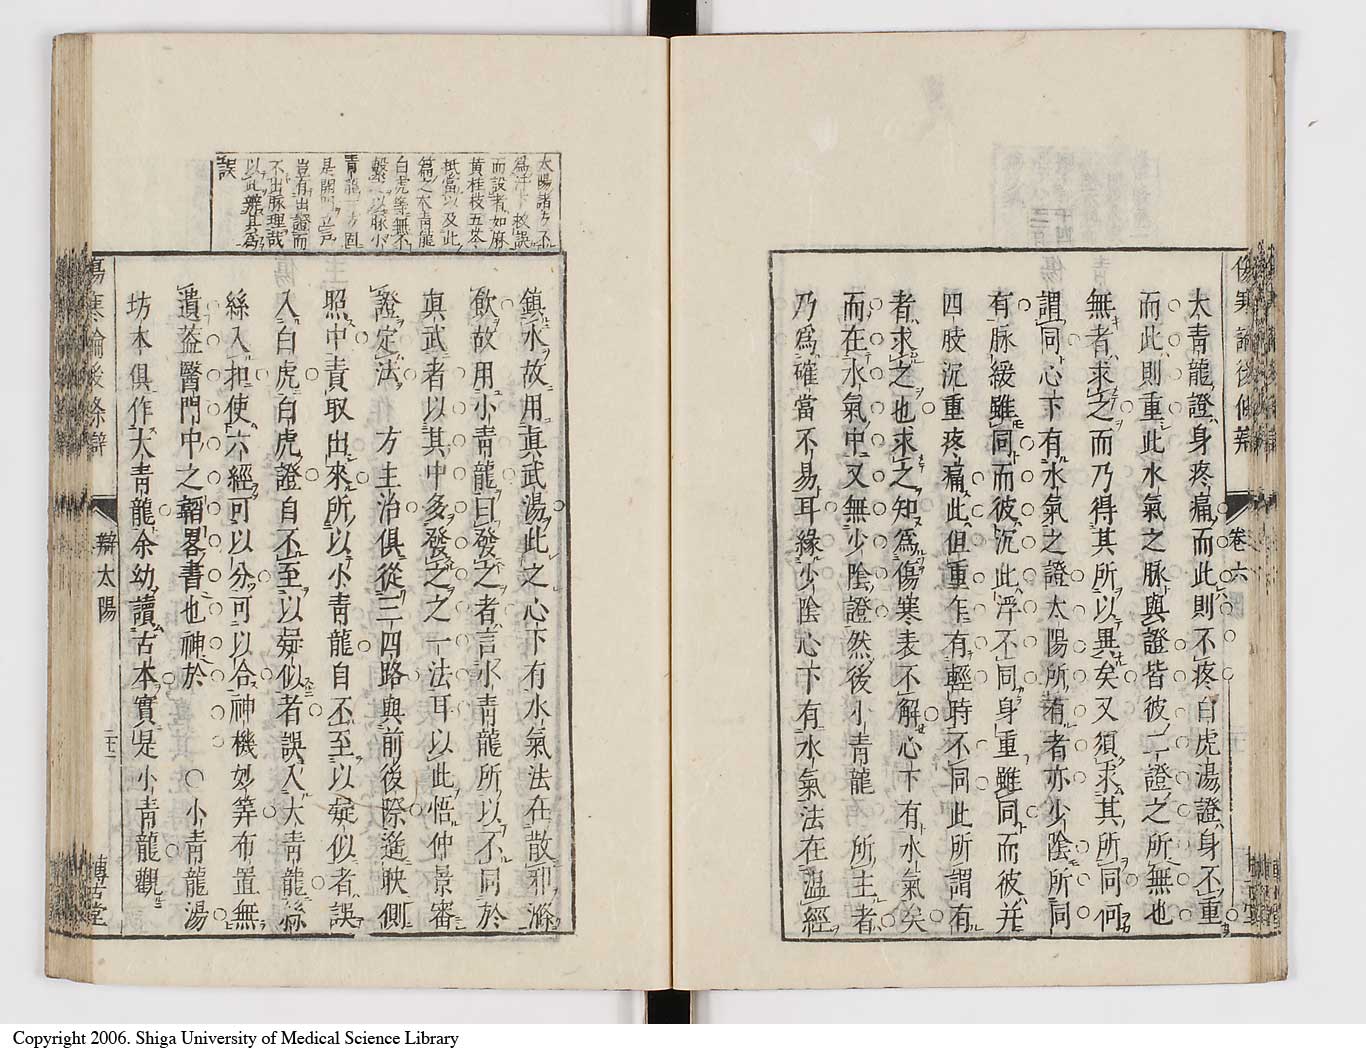 傷寒論後條辨
卷六
太青龍證身疼痛而此則不疼白虎湯證身不重
而此則重此水氣之脉與證皆彼二證之所無也
無者求之而乃得其所以異矣又須求其所同何
謂同心下有水氣之證太陽所有者亦少陰所同
有脉緩雖同而彼沉此浮不同身重雖同而彼并
四肢沉重疼痛此但重乍有輕時不同此所謂有
者求之也求之知爲傷寒表不解心下有水氣矣
而在水氣中又無少陰證然後小青龍 所主者
乃爲確當不易耳緣少陰心下有水氣法在温經
太陽諸方不
爲汗下救誤
而設者如麻
黄桂枝五苓
抵當以及此
篇之大青龍
白虎等無不
繫之以脉小
青龍一方固
是開門立戸
豈有出證而
不出脉理哉
以此辨其爲
誤
鎮水故用眞武湯此之心下有水氣法在散邪滌
飮故用小青龍曰發之者言小青龍所以不同於
眞武者以其中多發之之一法耳以此悟仲景審
證定法 方主治俱從三四路與前後際遙映側
照中責取出來所以小青龍自不至以疑似者誤
入白虎白虎證自不至以疑似者誤入大青龍絲
絲入扣使六經可以分可以合神機妙筭布置無
遺葢醫門中之韜畧書也神於 ○小青龍湯
坊本俱作大青龍余幼讀古本實是小青龍觀
傷寒論後條辨
辯太陽
二十七
博古堂
Copyright 2006. Shiga University of Medical Science Library